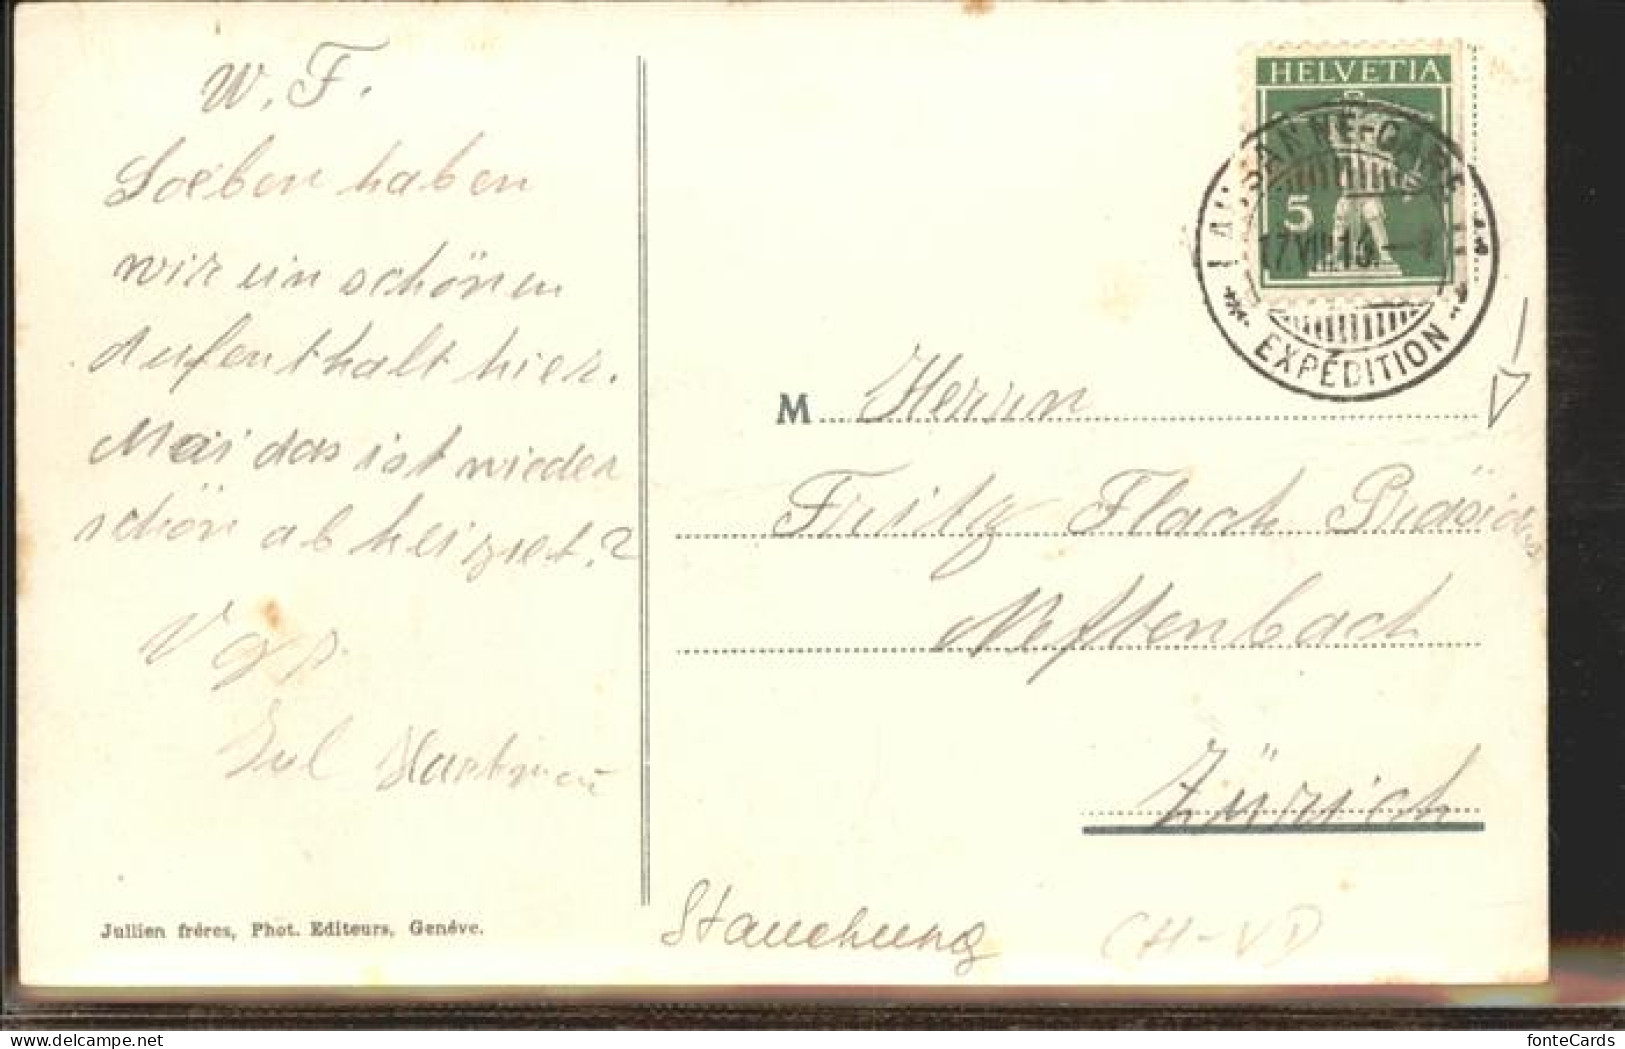 W. F.
Soeben haben
wir ein schönen
Aufenthalt hier.
Mai das ist wieder
schön ab heizet.?
Jullien fréres, Phot. Editeurs, Genéve.
HELVETIA
5
LAUSANNE-GARE
17.VIII.10.
EXPÉDITION
M Herrn
Fritz Flach Präsident
Neftenbach
Zürich
Stauchung
CH-VD
fonteCards
delcampe.net